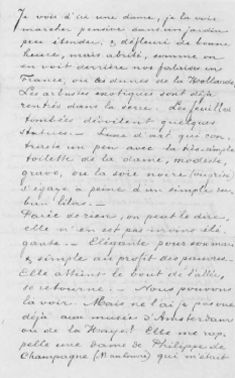 Je vois d'ici une dame, je la vois
marcher pensive dans un jardin
peu étendu, & défleuri de bonne
heure, mais abrité, comme on
en voit derrière nos falaises en
France, ou les dunes de la Hollande.
Les arbustes exotiques sont déjà
rentrés dans la serre. Les feuilles
tombées dévoilent quelques
statues. — Luxe d'art qui con-
traste un peu avec la très-simple
toilette de la dame, modeste,
grave, où la soie noire (ou grise)
s'égaye à peine d'un simple ru-
ban lilas. —
Parée de rien, on peut le dire,
elle n'en est pas moins élé-
gante. — Élégante pour son mari
& simple au profit des pauvres.
Elle atteint le bout de l'allée,
se retourne. — Nous pouvons
la voir. Mais ne l'ai-je pas vue
déjà aux musées d'Amsterdam
ou de la Haye? Elle me rap-
pelle une dame de Philippe de
Champagne qui m'était